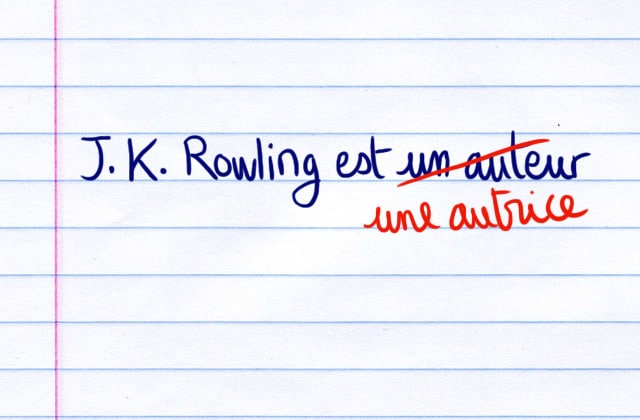 J. K. Rowling est un auteur
une autrice